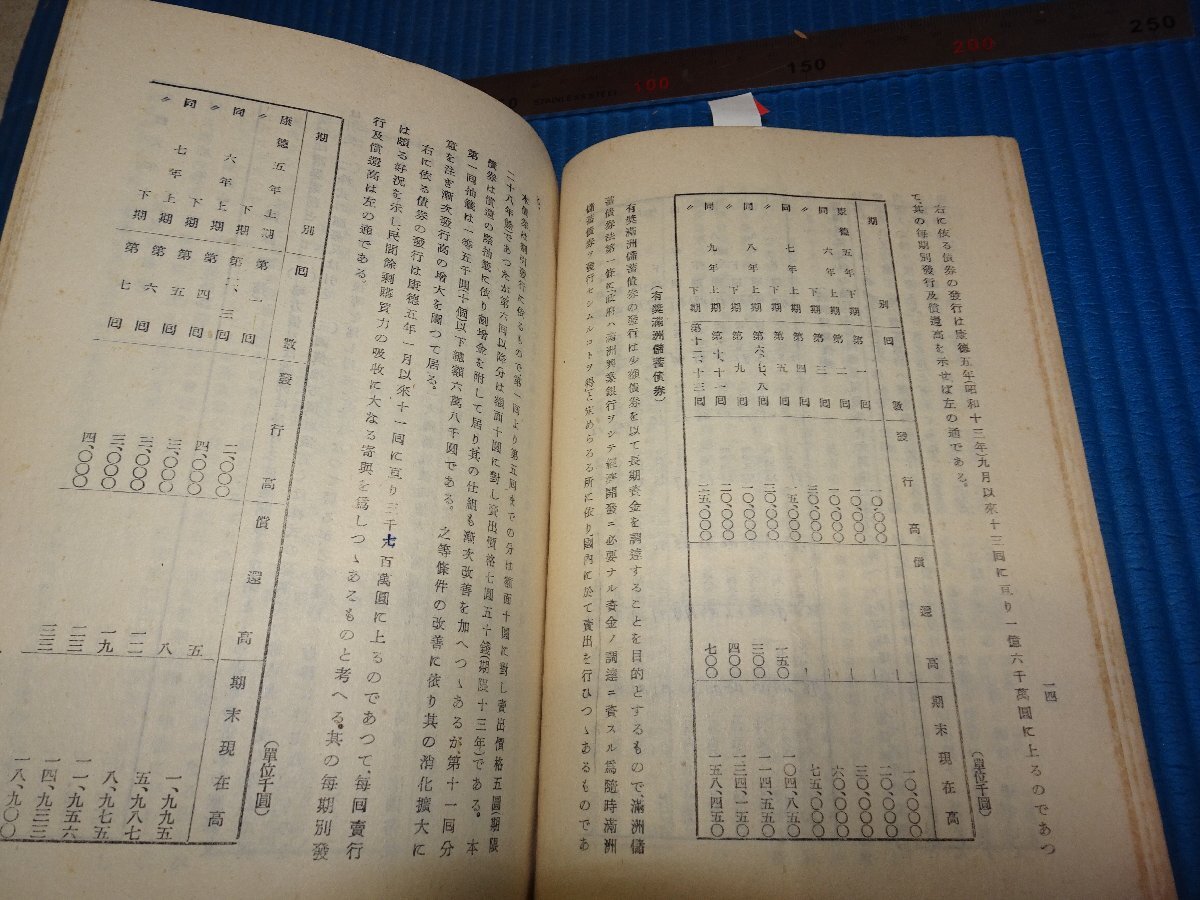 STAINLESS STEEL
100
150
200
250
一四
右に依る債券の發行は康德五年(昭和十三年)九月以來十三回に亙り一億六千萬圓に上るのであつ
て、其の每期別發行及償還高を示せば左の通である。
(單位千圓)
期別 回數 發行高 償還高 期末現在高
康德五年下期 第一回 一〇、〇〇〇 ｜ 一〇、〇〇〇
同六年上期 第二回 一〇、〇〇〇 ｜ 二〇、〇〇〇
〃 下期 第三回
同七年上期
〃 下期 第五回 一五、〇〇〇
同八年上期 第六、七、八回
〃 下期 第九回 二〇、〇〇〇
同九年上期
〃 下期 第十二、十三回 二五、〇〇〇 七〇〇 一五八、四五〇
(有奬滿洲儲蓄債券)
有奬滿洲儲蓄債券の發行は少額債券を以て長期資金を調達することを目的とするもので、滿洲儲
蓄債券法第一條に「政府ハ滿洲興業銀行ヲシテ經濟開發ニ必要ナル資金ノ調達ニ資スル爲隨時滿洲
儲蓄債券ヲ發行セシムルコトヲ得」と定めらるる所に依り、國內に於て賣出を行ひつゝあるものであ
る。
本債券は割引發行に依るもので第一回より第五回までの分は額面十圓に對し賣出價格五圓(期限
二十八年)であつたが第六回以降分は額面十圓に對し賣出價格七圓五十錢(期限十三年)である。本
債券は償還の際抽籤に依り割增金を附して居り其の仕組も漸次改善を加へつゝあるが、第十一回分
第一回抽籤は一等五千圓(十個)以下總額六萬八千圓である。之等條件の改善に依り其の消化擴大に
意を注ぎ漸次發行高の增大を圖つて居る。
右に依る債券の發行は康德五年一月以來十一回に亙り三千七百萬圓に上るのであつて、每回賣行
は頗る好況を示し民間餘剩購買力の吸收に大なる寄與を爲しつゝあるものと考へる。其の每期別發
行及償還高は左の通である。
(單位千圓)
期別 回數 發行高 償還高 期末現在高
康德五年上期 第一回 二、〇〇〇 五 一、九九五
〃 下期 第二、三回 四、〇〇〇 八 五、九八七
同六年上期 第四回 三、〇〇〇 一二 八、九七五
〃 下期 第五回 三、〇〇〇 一九 一一、九五六
同七年上期 第六回 三、〇〇〇 二三 一四、九三三
〃 下期 第七回 四、〇〇〇 三三 一八、九〇〇